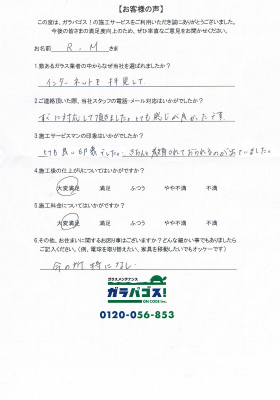 【お客様の声】
この度は、ガラパゴス！の施工サービスをご利用いただき誠にありがとうございました。
今後の皆さまの満足度向上のため、ぜひ率直なご意見をお聞かせください。
お名前 R.M さま
1.数あるガラス業者の中からなぜ当社を選ばれましたか？
インターネットを拝見して
2.ご連絡頂いた際、当社スタッフの電話・メール対応はいかがでしたか？
すぐに対応して頂きました。とても感じが良かったです。
3.施工サービスマンの印象はいかがでしたか？
とても良い印象でした。きちんと教育されておられるのが出ていました。
4.施工後の仕上がりについてはいかがですか？
大変満足 満足 ふつう やや不満 不満
5.施工料金についてはいかがですか？
大変満足 満足 ふつう やや不満 不満
6.その他、お住まいに関するお困り事はございますか？どんな細かい事でもありましたら
ご記入ください。(例、電球を取り替えたい、家具を移動したいでもオッケーです)
今の所特になし
ガラスメンテナンス
ガラパゴス！
ON CODE Inc.
0120-056-853